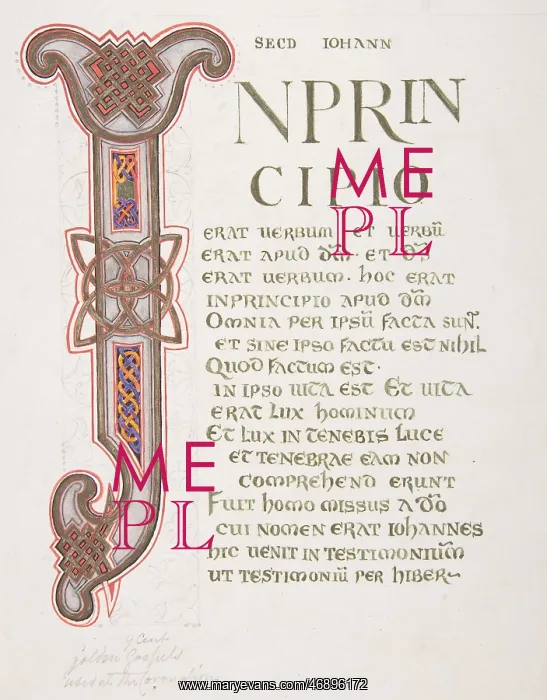 SECD IOHANN
INPRIN
CIPIO
ERAT UERBUM ET UERBŪ
ERAT APUD D̄M · ET D̄S
ERAT UERBUM · hOC ERAT
INPRINCIPIO APUD D̄M
OMNIA PER IPSŪ FACTA SUN̄T.
ET SINE IPSO FACTU EST NIhIL
QUOD FACTUM EST ·
IN IPSO UITA EST ET UITA
ERAT LUX hOMINUM
ET LUX IN TENEBIS LUCE
ET TENEBRAE EAM NON
COMPREhEND ERUNT
FUIT hOMO MISSUS A D̄O
CUI NOMEN ERAT IOhANNES
hIC UENIT IN TESTIMONIUM̄
UT TESTIMONIŪ PER hIBER
ME
PL
ME
PL
9 Cent
golden Gospels
used at the
www.maryevans.com/46896172